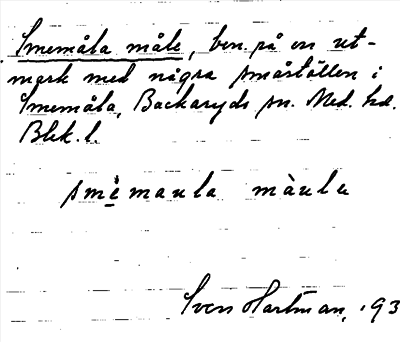 Smemåla måle, ben. på en ut-
mark med några småställen i
Smemåla, Backaryds sn. Med. hd.
Blek. l.
smèmaula màule
Sven Hartman, 193